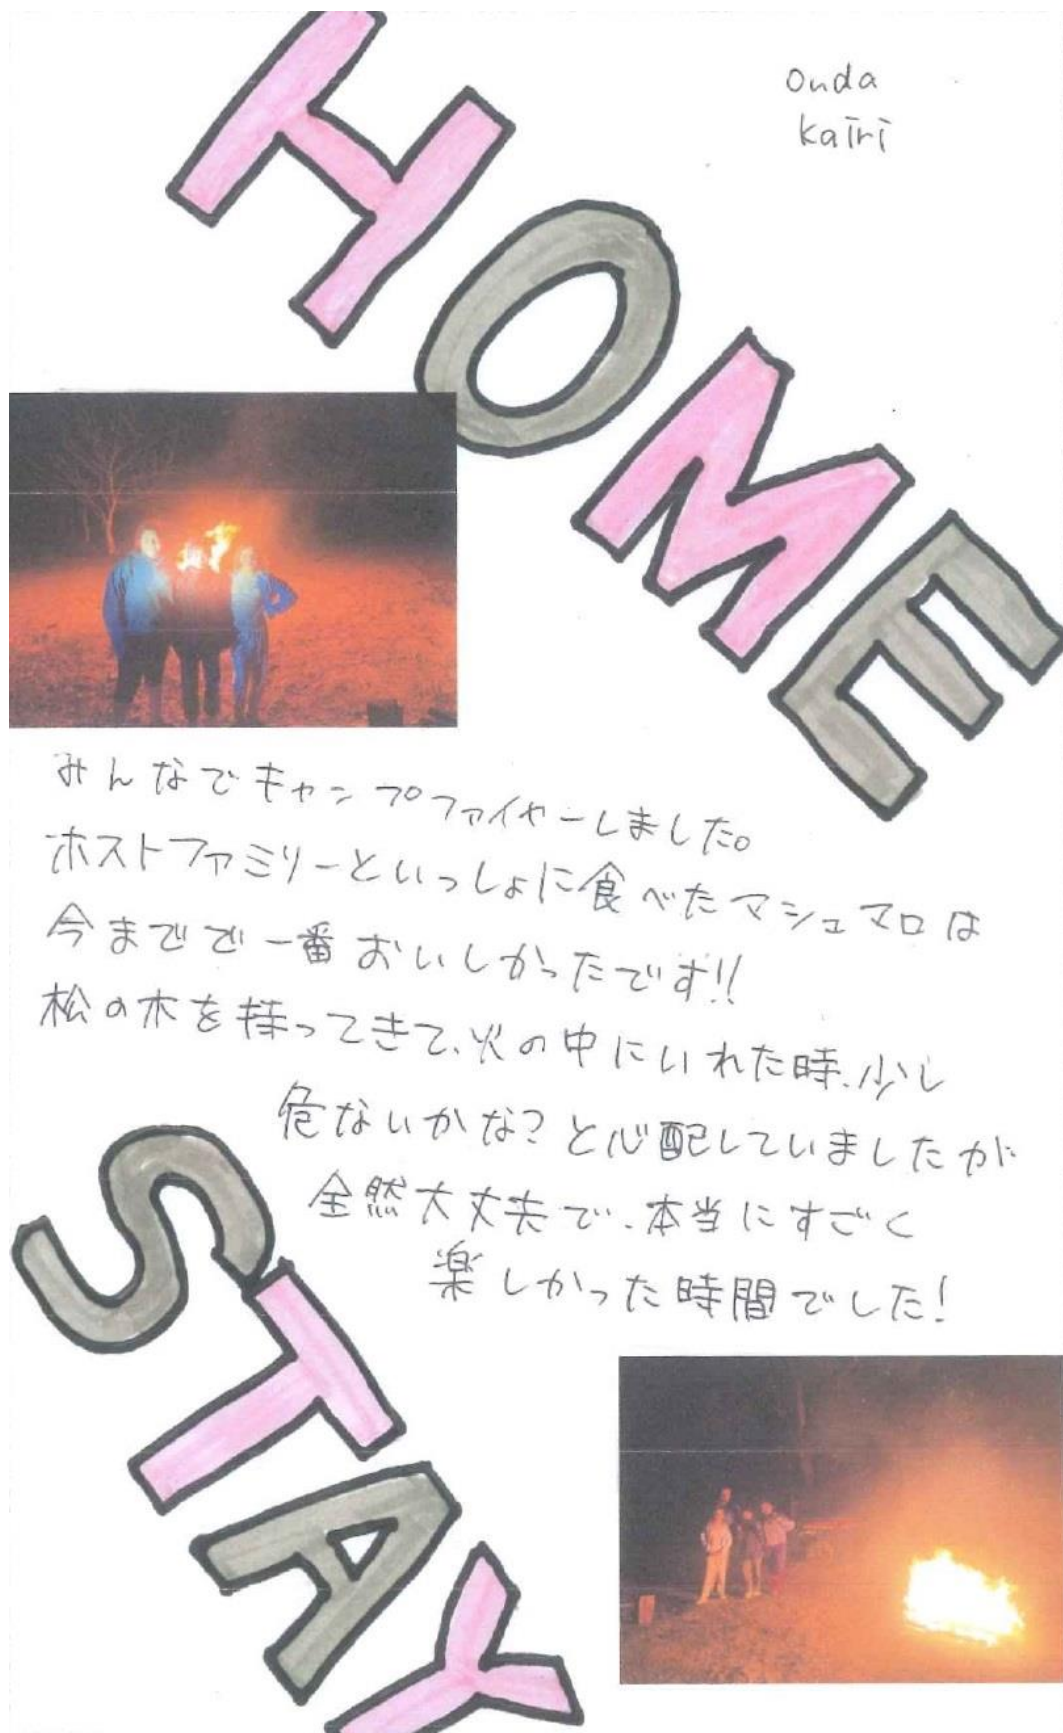 Onda
Kairi
HOME
みんなでキャンプファイヤーしました。
ホストファミリーといっしょに食べたマシュマロは
今までで一番おいしかったです!!
松の木を持ってきて、火の中にいれた時、少し
危ないかな?と心配していましたが
全然大丈夫で、本当にすごく
楽しかった時間でした!
STAY